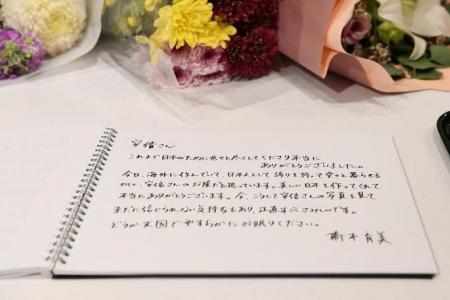 安倍さん
これまで日本のために色々と尽くしてくださり本当に
ありがとうございました。
今日、海外に住んでいて、日本人として誇りを持って堂々と暮らせる
のは、安倍さんのお陰だと思っています。美しい日本を作ってくれて
本当にありがとうございます。今、こうして安倍さんの写真を見て
まだ信じられない気持ちもあり、正直すごくさみしいです。
どうか天国でやすらかにお眠りください。
木 育美